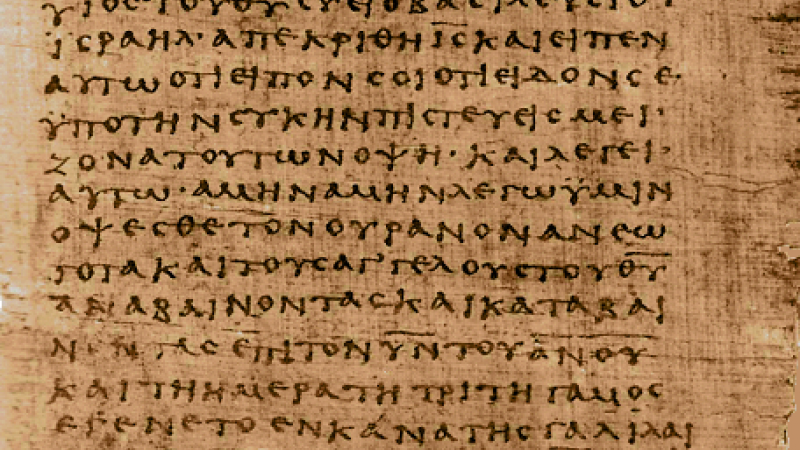 υιοσ του θ̅υ̅ συ ει ο βασιλευσ ει του
ϊσραηλ· απεκριθη ι̅σ̅ και ειπεν
αυτω οτι ειπον σοι οτι ειδον σε·
ϋποτην συκην πιστευεισ μει·
ζονα τουτων οψη· και λεγει·
αυτω· αμην αμην λεγω ϋμιν
οψεσθε τον ουρανον ανεω
γοτα και τουσ αγ᾽γελουσ του θ̅υ̅
αναβαινοντασ και καταβαι
νοντασ επι τον υ̅ν̅ του α̅ν̅ο̅υ̅
και τη ημερα τη τριτη γαμοσ
εγενετο εν κανα τησ γαλιλαι